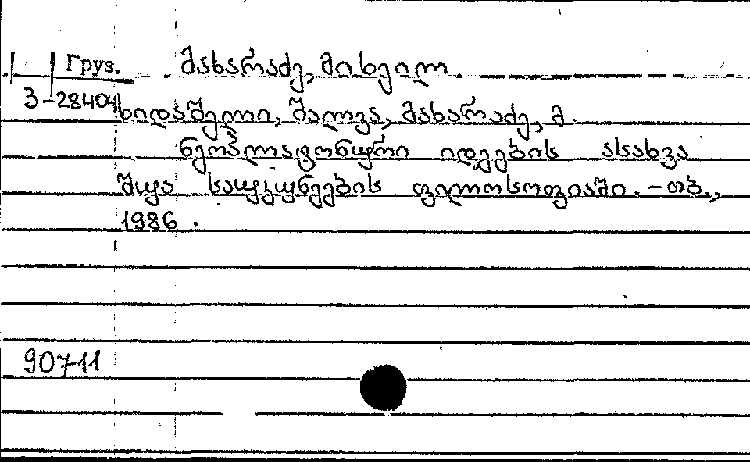 Груз. მახარაძე, მიხეილ
3-28404
ხიდაშელი, შალვა, მახარაძე, მ.
ნეოპლატონური იდეების ასახვა
შუა საუკუნეების ფილოსოფიაში. - თბ.,
1986.
90711